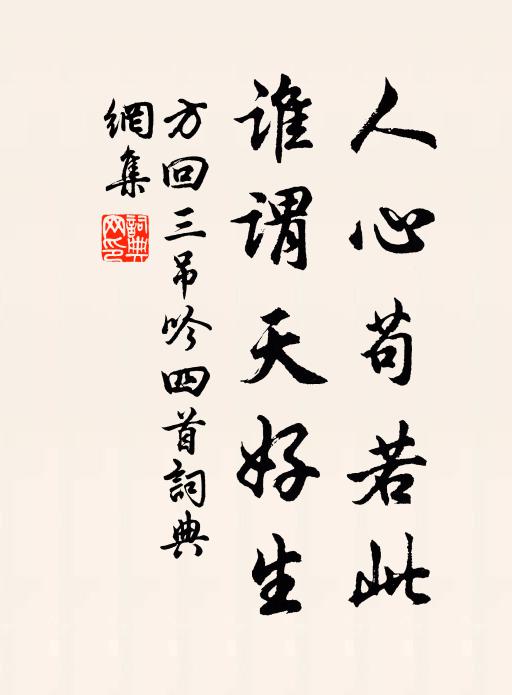 人心苟若此
谁谓天好生
方回三吊吟四首詞典
網集
詞典
网印